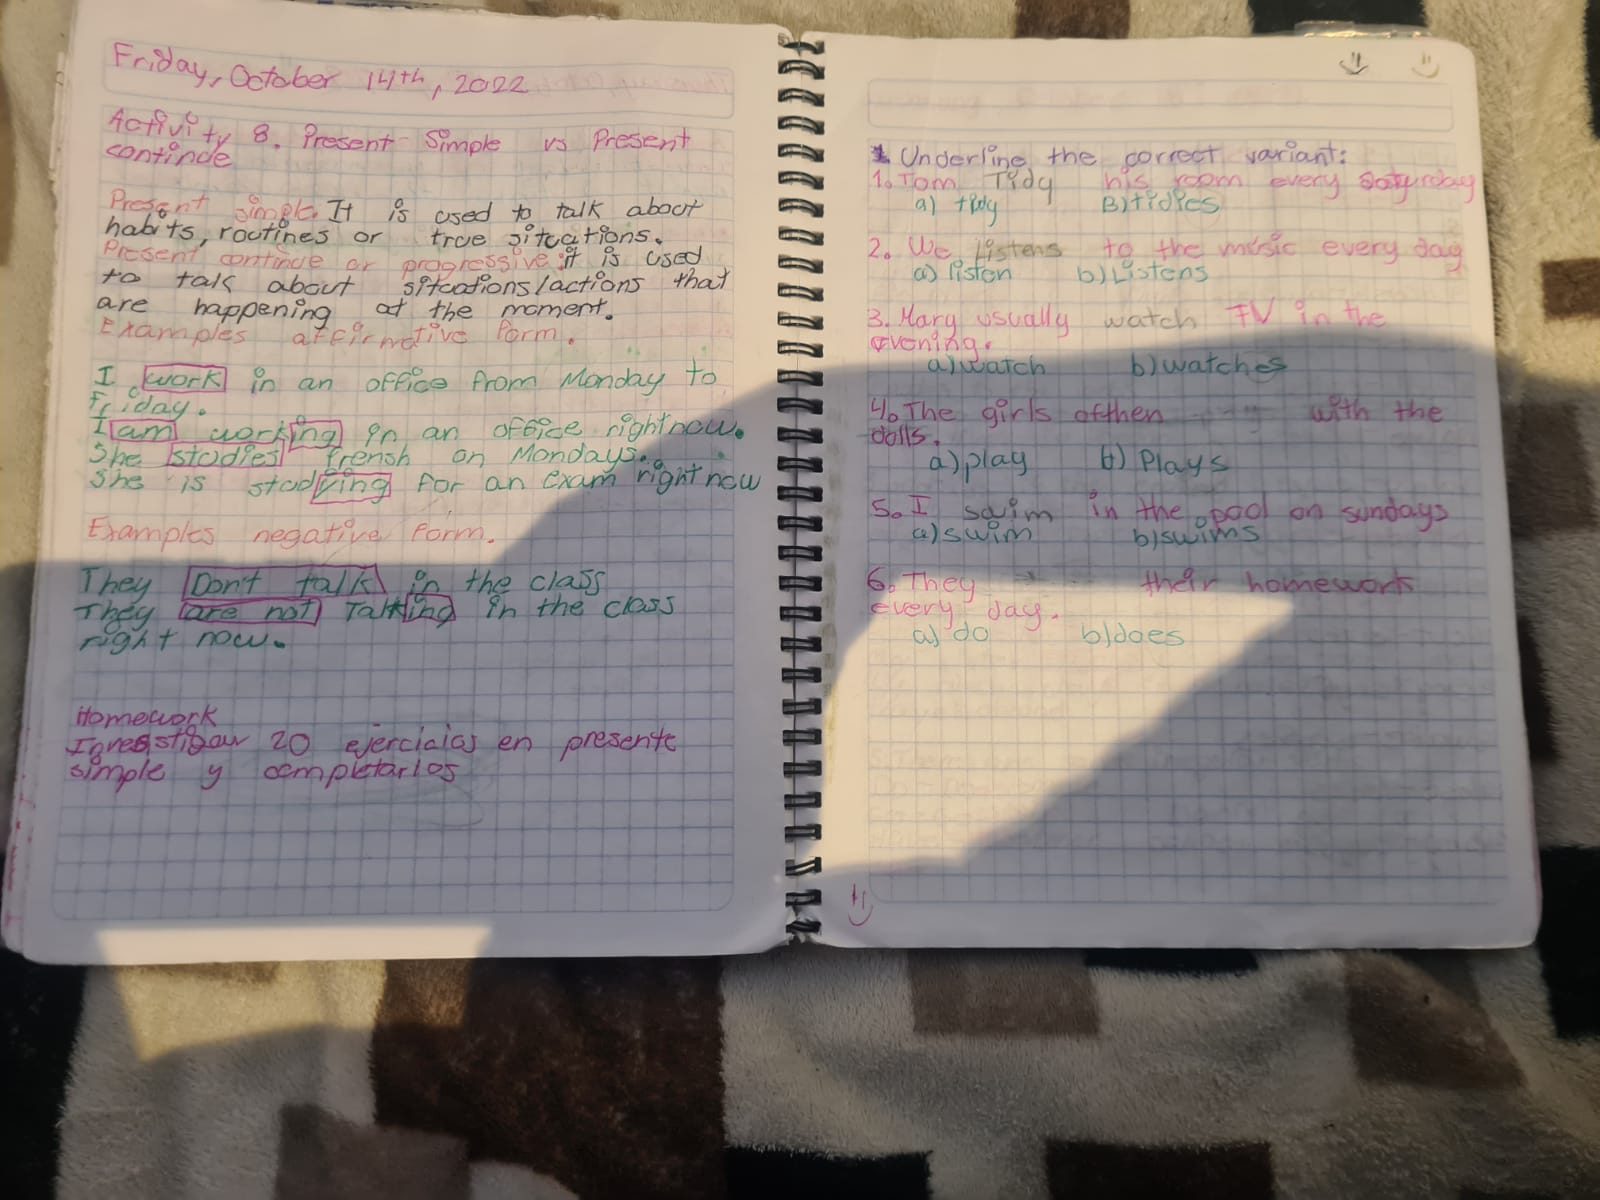 Friday, October 14th, 2022
Activity 8. Present Simple vs Present
continue
Present simple. It is used to talk about
habits, routines or true situations.
Present continue or progressive: it is used
to talk about situations/actions that
are happening at the moment.
Examples affirmative form.
I work in an office from Monday to
Friday.
I am working in an office right now.
She studies frensh on Mondays.
She is studying for an exam right now
Examples negative form.
They Don't talk in the class
They are not Talking in the class
right now.
Homework
Investigar 20 ejercicios en presente
simple y completarlos
1. Underline the correct variant:
1. Tom Tidy his room every Saturday
a) tidy B) tidies
2. We Listens to the music every day
a) listen b) Listens
3. Mary usually watch TV in the
evening.
a) watch b) watches
4. The girls ofthen with the
dolls.
a) play b) Plays
5. I swim in the pool on sundays
a) swim b) swims
6. They their homework
every day.
a) do b) does